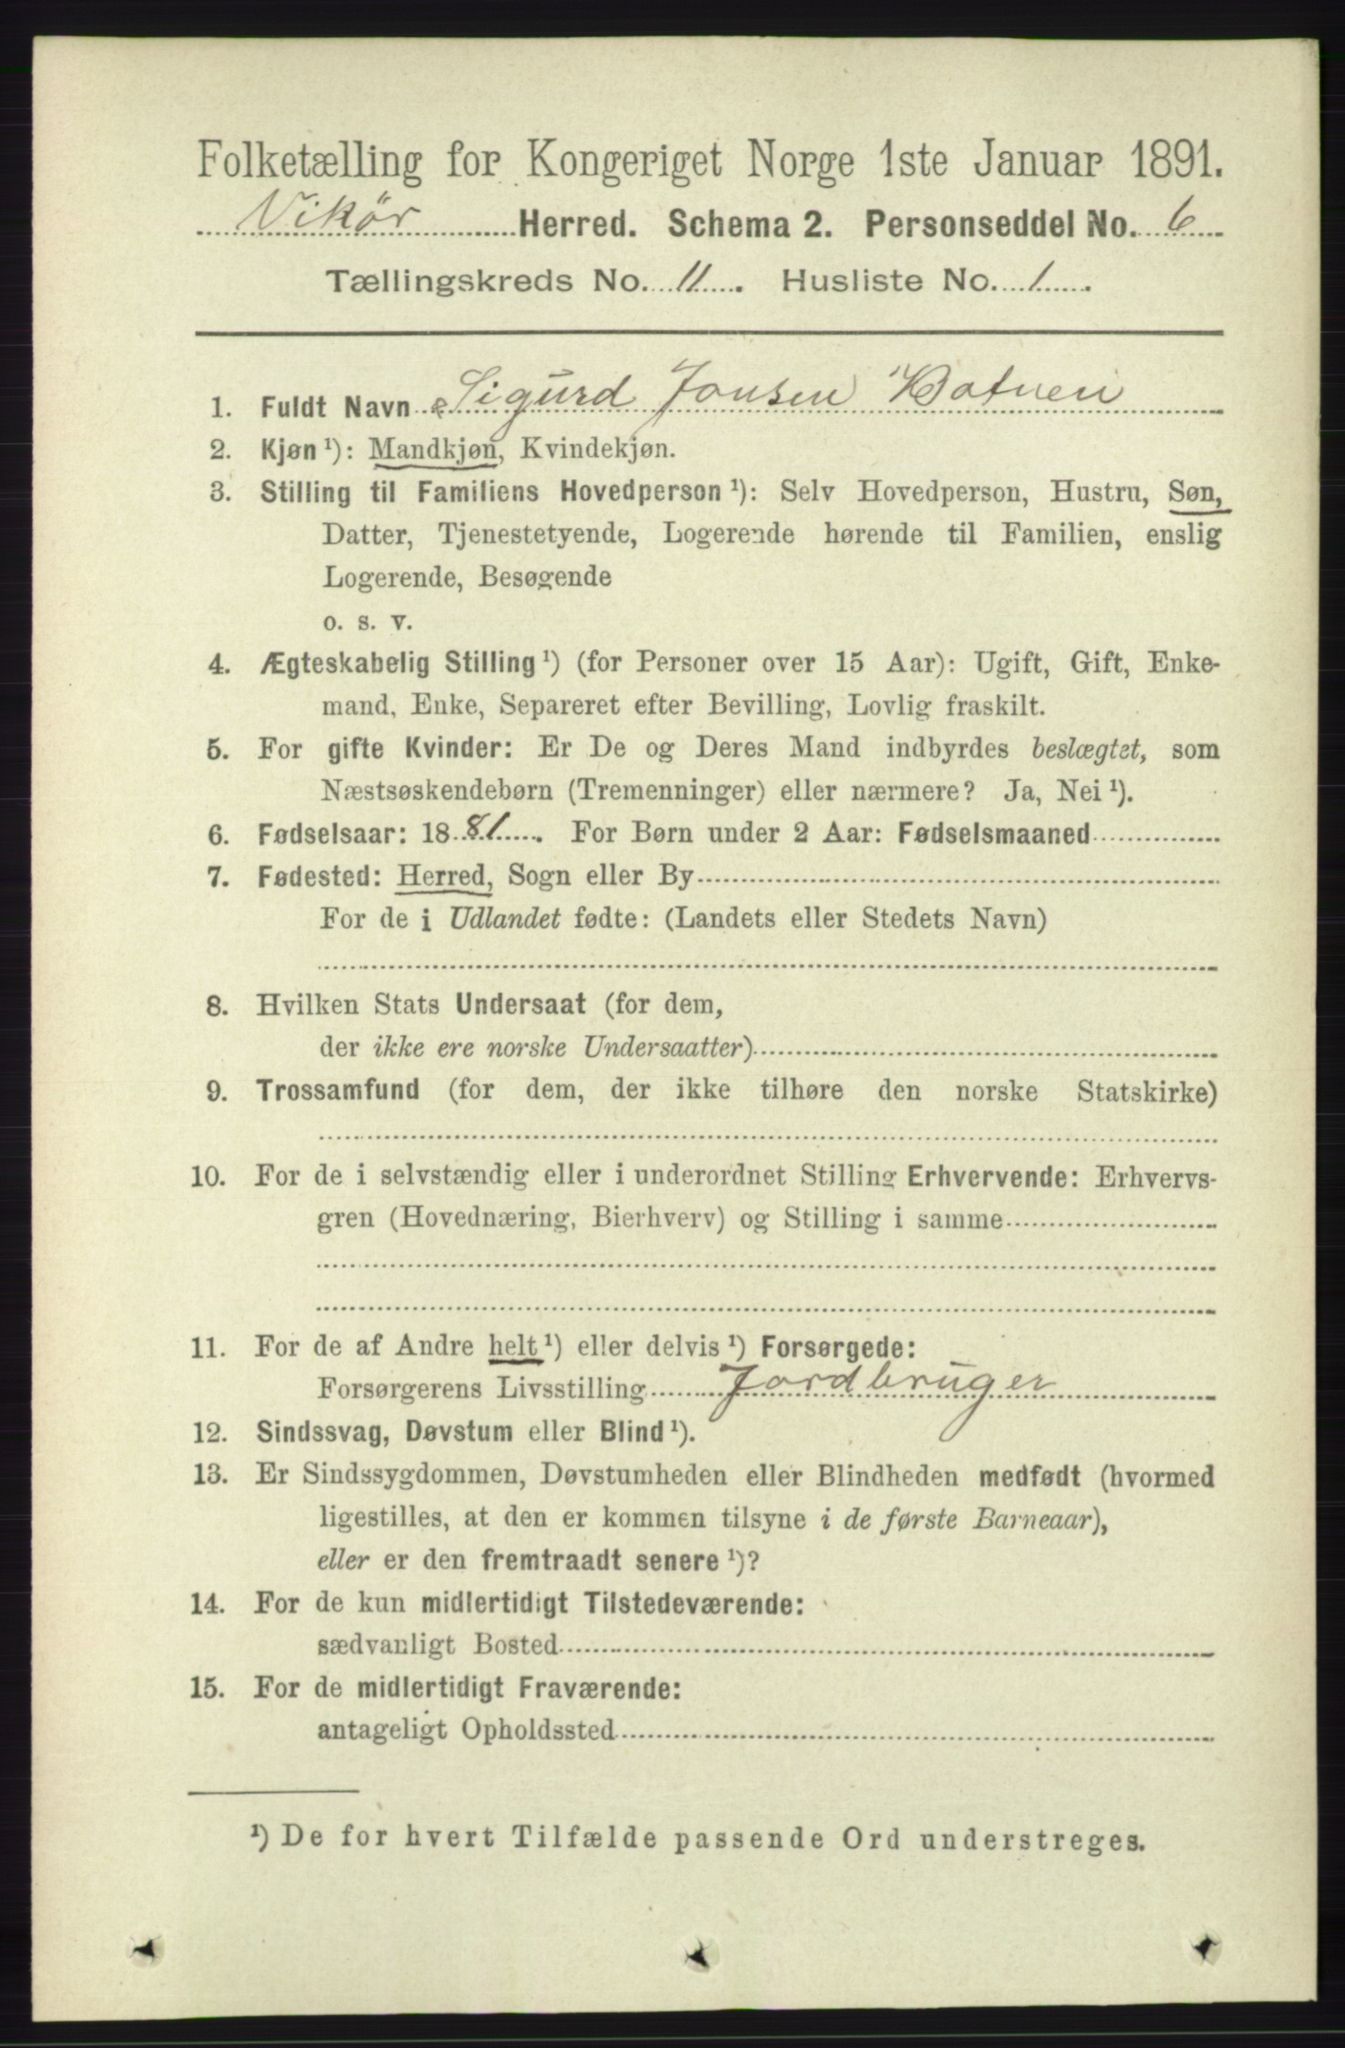 Folketælling for Kongeriget Norge 1ste Januar 1891.
Vikör Herred. Schema 2. Personseddel No. 6
Tællingskreds No. 11. Husliste No. 1.
1. Fuldt Navn Sigurd Jonsen Botnen
2. Kjøn ¹): Mandkjøn, Kvindekjøn.
3. Stilling til Familiens Hovedperson ¹): Selv Hovedperson, Hustru, Søn,
Datter, Tjenestetyende, Logerende hørende til Familien, enslig
Logerende, Besøgende
o. s. v.
4. Ægteskabelig Stilling ¹) (for Personer over 15 Aar): Ugift, Gift, Enke-
mand, Enke, Separeret efter Bevilling, Lovlig fraskilt.
5. For gifte Kvinder: Er De og Deres Mand indbyrdes beslægtet, som
Næstsøskendebørn (Tremenninger) eller nærmere? Ja, Nei ¹).
6. Fødselsaar: 1881. For Børn under 2 Aar: Fødselsmaaned
7. Fødested: Herred, Sogn eller By
For de i Udlandet fødte: (Landets eller Stedets Navn)
8. Hvilken Stats Undersaat (for dem,
der ikke ere norske Undersaatter)
9. Trossamfund (for dem, der ikke tilhøre den norske Statskirke)
10. For de i selvstændig eller i underordnet Stilling Erhvervende: Erhvervs-
gren (Hovednæring, Bierhverv) og Stilling i samme
11. For de af Andre helt ¹) eller delvis ¹) Forsørgede:
Forsørgerens Livsstilling Jordbruger
12. Sindssvag, Døvstum eller Blind ¹).
13. Er Sindssygdommen, Døvstumheden eller Blindheden medfødt (hvormed
ligestilles, at den er kommen tilsyne i de første Barneaar),
eller er den fremtraadt senere ¹)?
14. For de kun midlertidigt Tilstedeværende:
sædvanligt Bosted
15. For de midlertidigt Fraværende:
antageligt Opholdssted
¹) De for hvert Tilfælde passende Ord understreges.